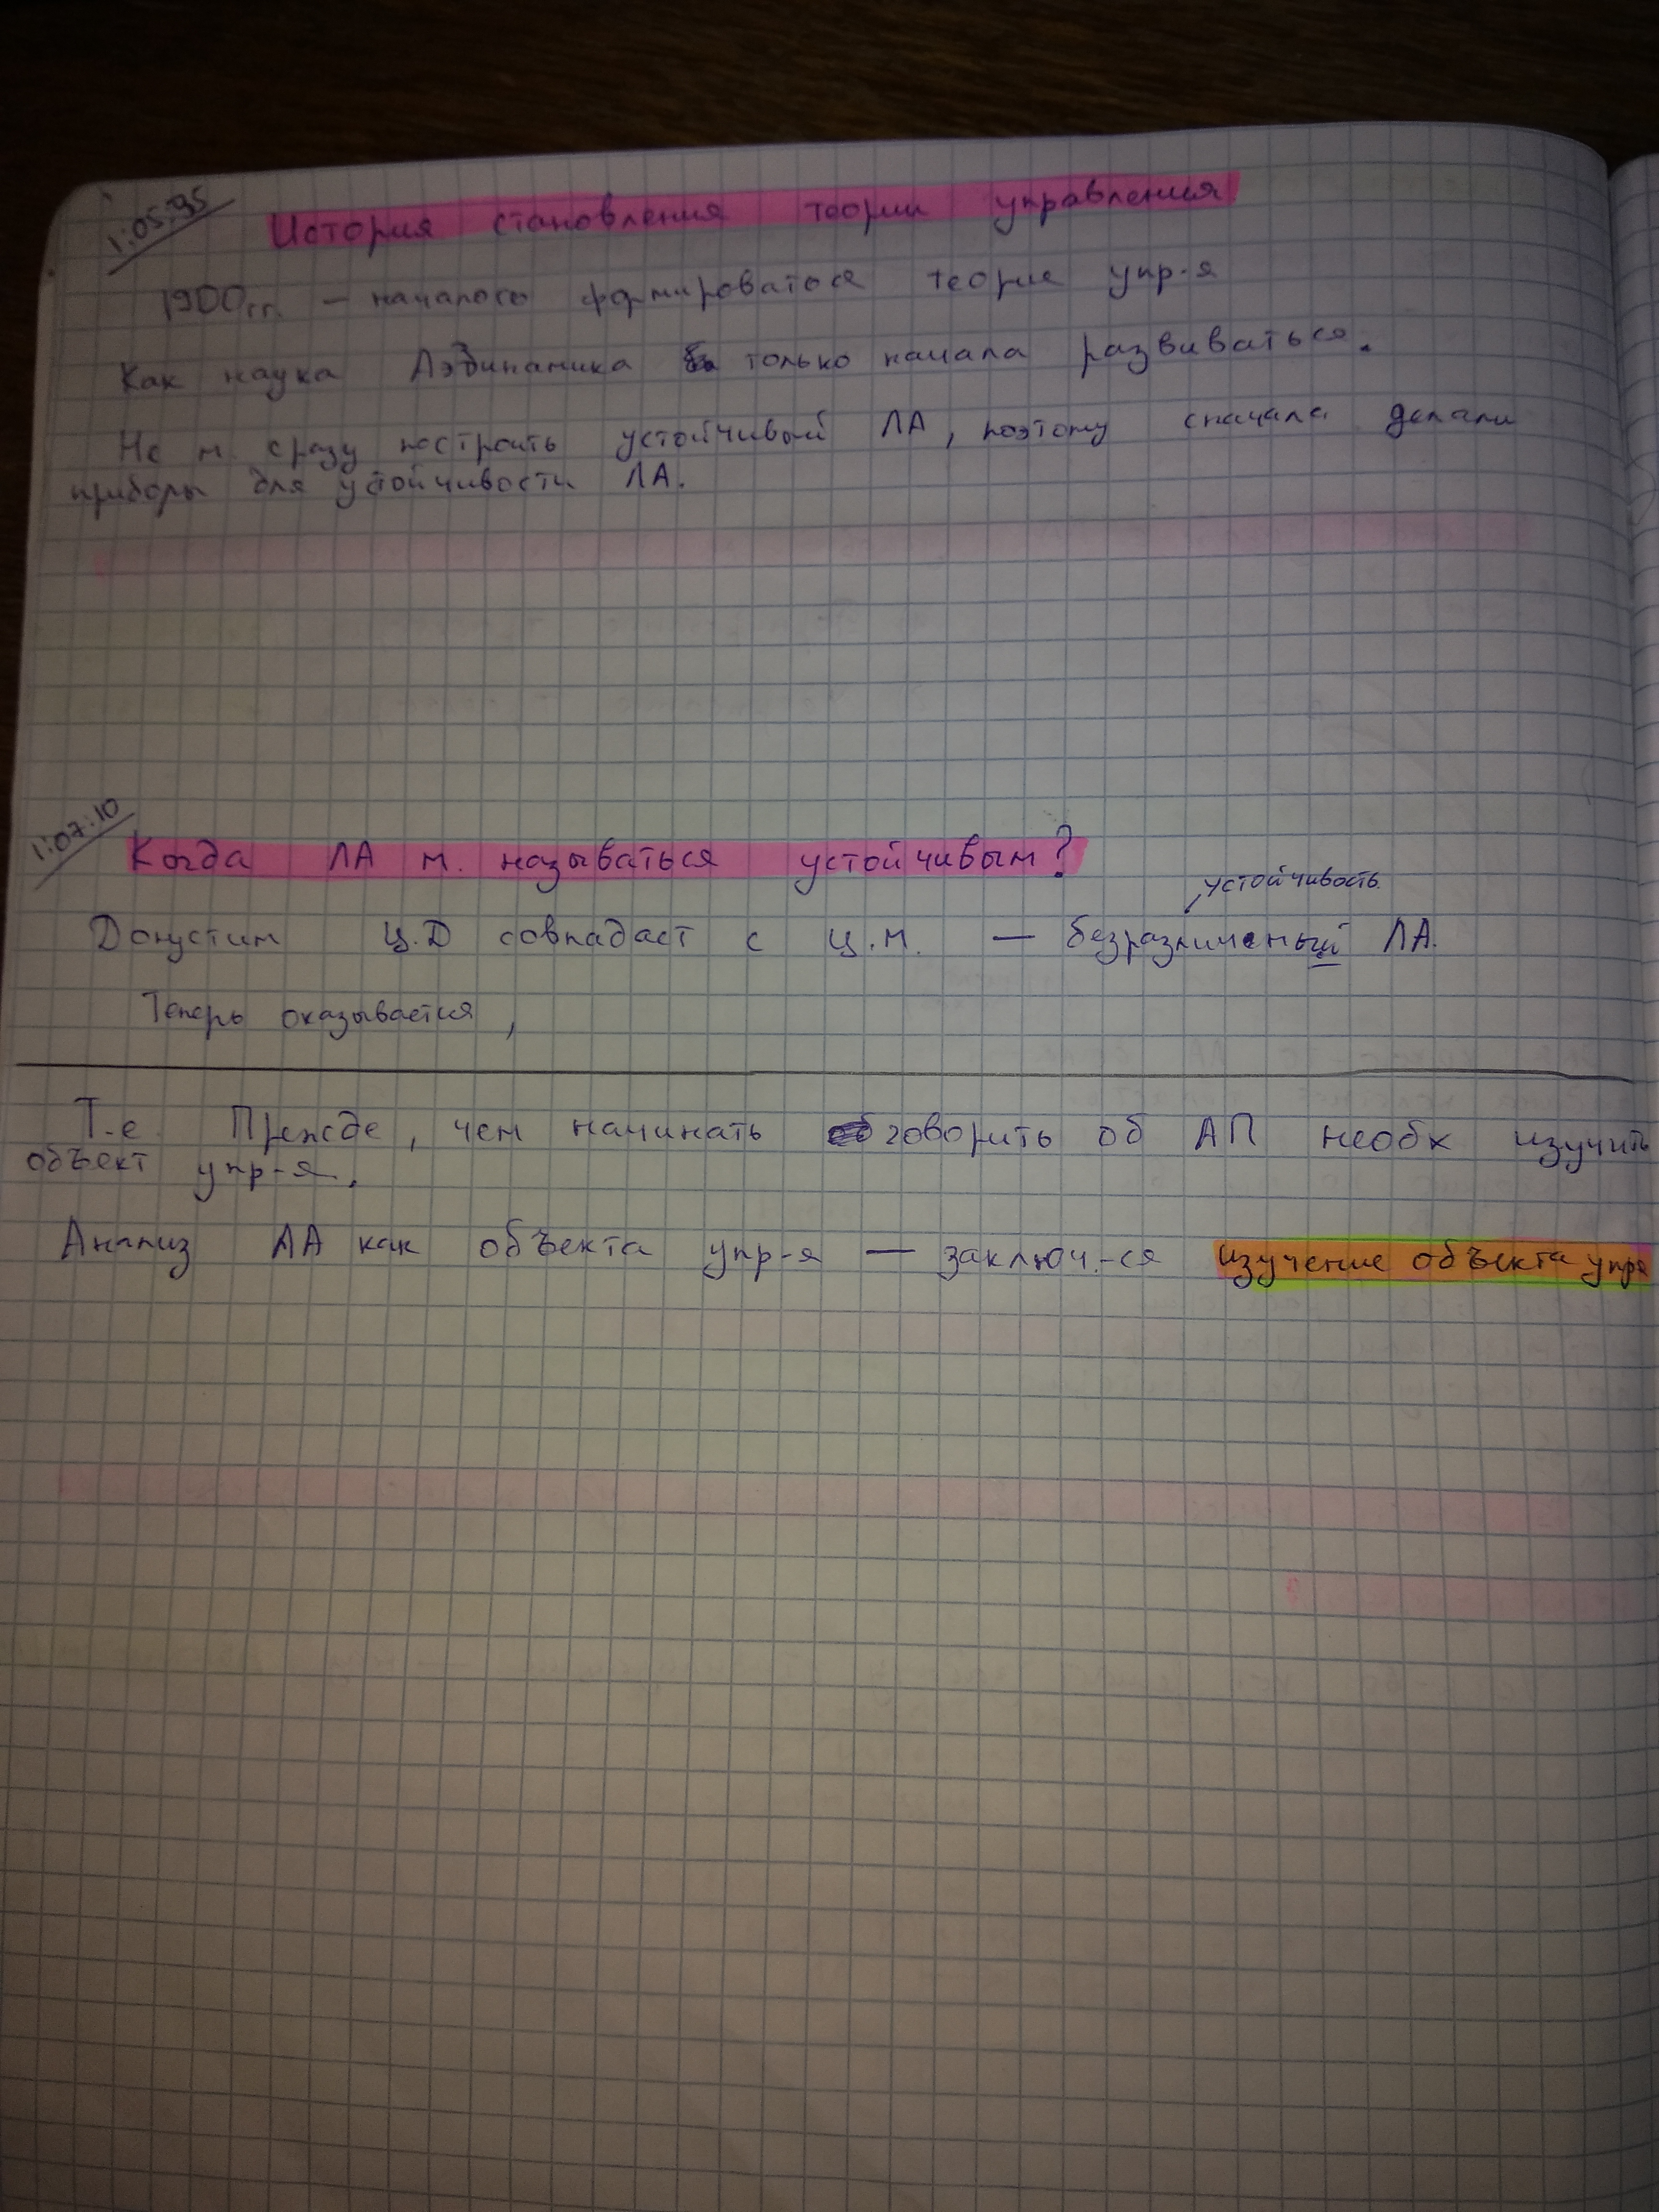 1:05:95
История становления теории управления
1900гг. – началось формироваться теория упр-я
Как наука Аэдинамика только начала развиваться.
Не м. сразу построить устойчивый ЛА, поэтому сначала делали
приборы для устойчивости ЛА.
1:07:10
Когда ЛА м. называться устойчивым?
устойчивость
Допустим Ц.Д совпадает с Ц.М. — безразличный ЛА.
Теперь оказывается,
Т.е Прежде, чем начинать говорить об АП необх изучить
объект упр-я.
Анализ ЛА как объекта упр-я — заключ.-ся изучение объекта упр-я